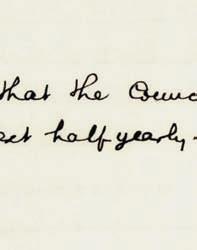 that the Counc
eet half yearly -